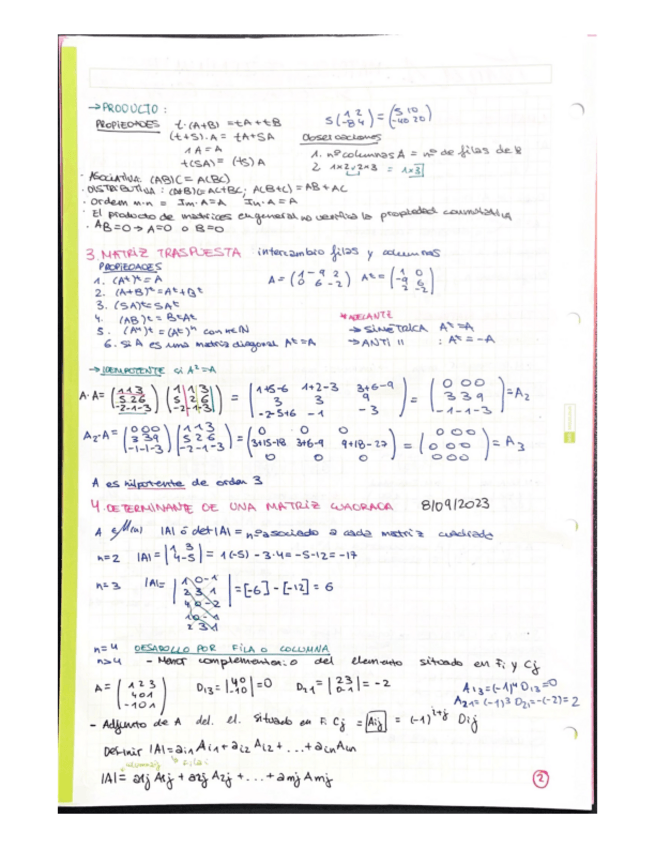 →PRODUCTO:
PROPIEDADES t·(A+B) = tA+tB 5(1 2 / -8 4) = (5 10 / -40 20)
(t+s)·A = tA+SA Observaciones
1A = A 1. nº columnas A = nº de filas de B
t(SA) = (ts)A 2. 1x2, 2x3 = 1x3
· ASOCIATIVA: (AB)C = A(BC)
· DISTRIBUTIVA: (A+B)C=AC+BC; A(B+C) = AB + AC
· Orden m·n = Im·A=A In·A = A
· El producto de matrices en general no verifica la propiedad conmutativa
· AB=0 → A=0 o B=0
3. MATRIZ TRASPUESTA intercambio filas y columnas
PROPIEDADES
1. (Aᵗ)ᵗ = A A = (1 -9 2 / 0 6 -2) Aᵗ = (1 0 / -9 6 / 2 -2)
2. (A+B)ᵗ = Aᵗ+Bᵗ
3. (SA)ᵗ = SAᵗ
4. (AB)ᵗ = BᵗAᵗ * ADELANTE
5. (Aⁿ)ᵗ = (Aᵗ)ⁿ con n∈ℕ → SIMÉTRICA Aᵗ=A
6. Si A es una matriz diagonal Aᵗ = A → ANTI " : Aᵗ = -A
→ IDEMPOTENTE si A² = A
A·A = (1 1 3 / 5 2 6 / -2 -1 -3) (1 1 3 / 5 2 6 / -2 -1 -3) = (1+5-6 1+2-3 3+6-9 / 3 3 9 / -2-5+6 -1 -3) = (0 0 0 / 3 3 9 / -1 -1 -3) = A₂
A₂·A = (0 0 0 / 3 3 9 / -1 -1 -3) (1 1 3 / 5 2 6 / -2 -1 -3) = (0 0 0 / 3+15-18 3+6-9 9+18-27 / 0 0 0) = (0 0 0 / 0 0 0 / 0 0 0) = A₃
A es nilpotente de orden 3
4. DETERMINANTE DE UNA MATRIZ CUADRADA 8/09/2023
A ∈ M(n) |A| ó det|A| = nº asociado a cada matriz cuadrada
n=2 |A| = |1 3 / 4 -5| = 1(-5) - 3·4 = -5-12 = -17
n=3 |A| = |1 0 -1 / 2 3 1 / 4 0 -2| = [-6] - [-12] = 6
1 0 -1
2 3 1
n=4 DESAROLLO POR FILA O COLUMNA
n>4 - Menor complementario del elemento situado en Fi y Cj
A = (1 2 3 / 4 0 1 / -1 0 1) D₁₃ = |4 0 / -1 0| = 0 D₂₁ = |2 3 / 0 1| = -2 A₁₃ = (-1)⁴ D₁₃ = 0
A₂₁ = (-1)³ D₂₁ = -(-2) = 2
- Adjunto de A del. el. situado en Fi Cj = Aij = (-1)ⁱ⁺ʲ Dij
Definir |A| = ai₁ Ai₁ + ai₂ Ai₂ + ... + ain Ain
columnaj filai
|A| = a1j A1j + a2j A2j + ... + amj Amj
2